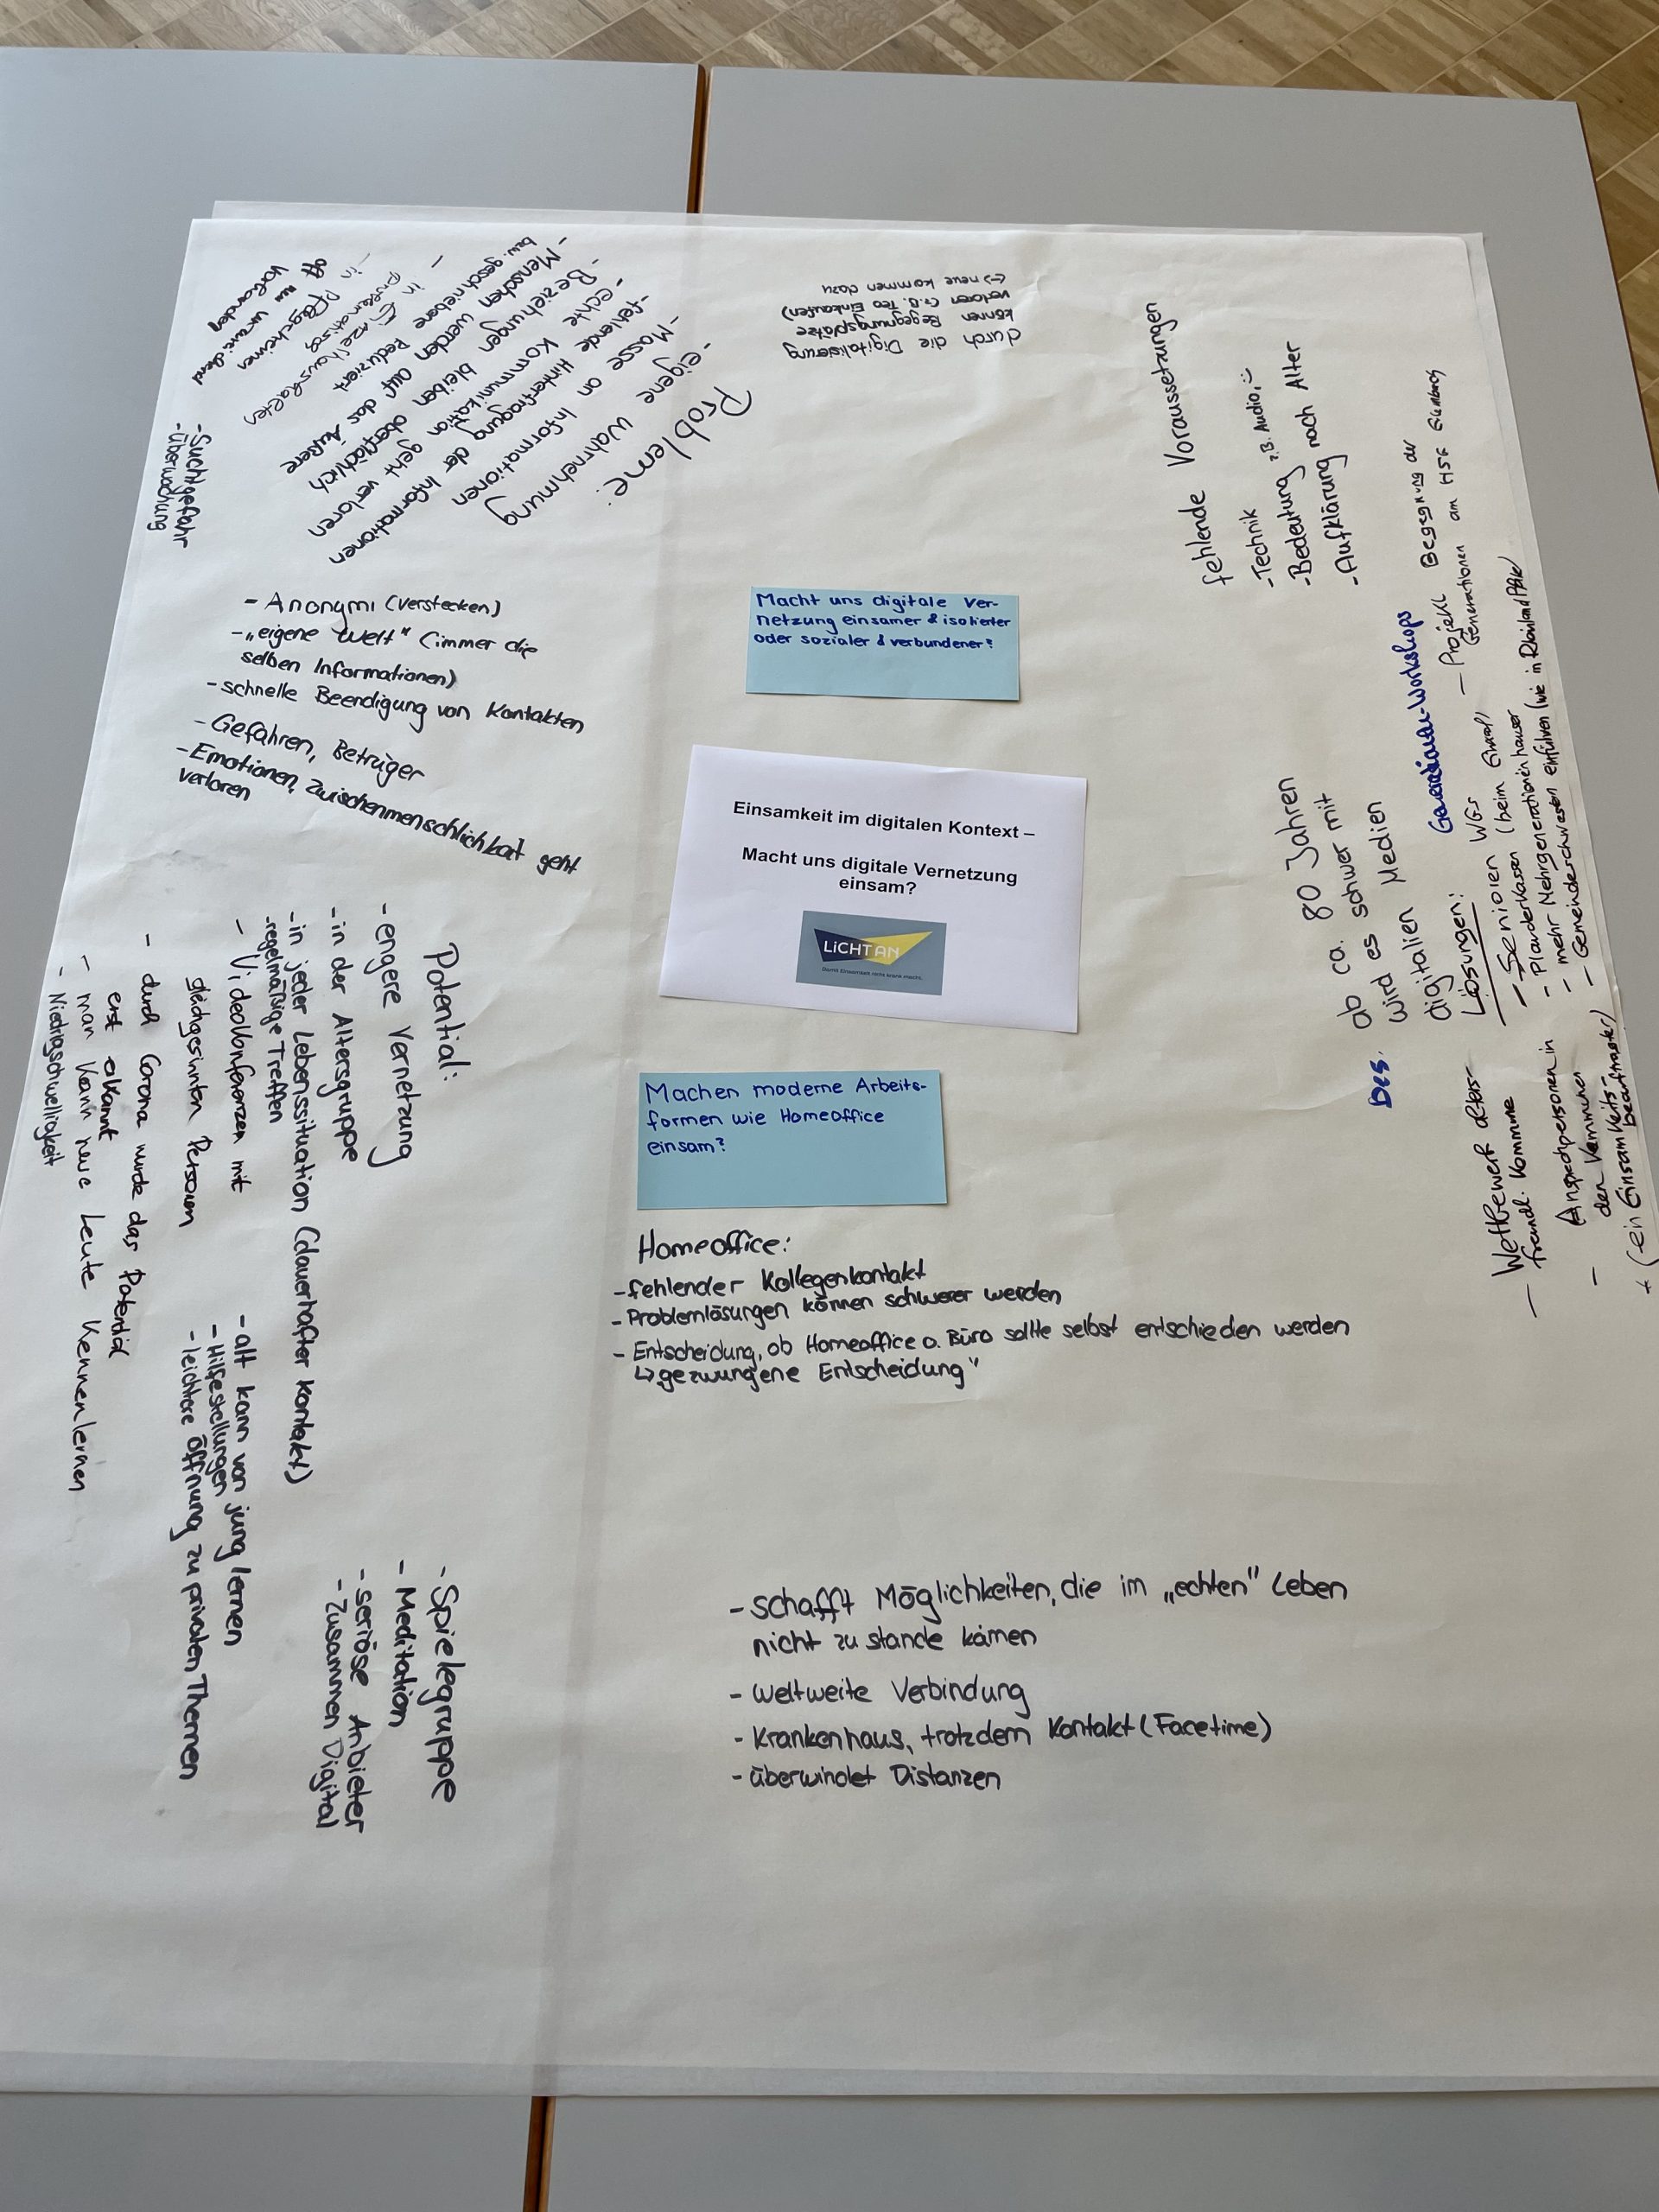 Einsamkeit im digitalen Kontext –
Macht uns digitale Vernetzung
einsam?
LiCHT AN
Damit Einsamkeit nicht krank macht.
Macht uns digitale Ver-
netzung einsamer & isolierter
oder sozialer & verbundener?
Machen moderne Arbeits-
formen wie Homeoffice
einsam?
Homeoffice:
- fehlender Kollegenkontakt
- Problemlösungen können schwerer werden
- Entscheidung, ob Homeoffice o. Büro sollte selbst entschieden werden
↳ „gezwungene Entscheidung"
- schafft Möglichkeiten, die im „echten" Leben
nicht zu stande kämen
- weltweite Verbindung
- Krankenhaus, trotzdem Kontakt (Facetime)
- überwindet Distanzen
Probleme:
- eigene Wahrnehmung
- Masse an Informationen
- fehlende Hinterfragung der Informationen
- echte Kommunikation geht verloren
- Beziehungen bleiben oberflächlich
- Menschen werden auf das Äußere
bzw. geschriebene Reduziert
- in Einzelhaushalten
problematisch
- in Pflegeheimen
oft nur unzureichend
vorhanden
- Suchtgefahr
- überwachung
- Anonymi (verstecken)
- „eigene Welt" (immer die
selben Informationen)
- schnelle Beendigung von Kontakten
- Gefahren, Betrüger
- Emotionen, Zwischenmenschlichkeit geht
verloren
durch die Digitalisierung
können Begegnungsplätze
verloren (z.B. Teo Einkaufen)
(→) neue kommen dazu
Potential:
- engere Vernetzung
- in der Altersgruppe
- in jeder Lebenssituation (dauerhafter Kontakt)
- regelmäßige Treffen
- Videokonferenzen mit
gleichgesinnten Personen
- durch Corona wurde das Potential
erst erkannt
- man kann neue Leute kennenlernen
- Niedrigschwelligkeit
- alt kann von jung lernen
- Hilfestellungen
- leichtere Öffnung zu privaten Themen
- Spielegruppe
- Meditation
- seriöse Anbieter
- Zusammen Digital
fehlende Voraussetzungen
- Technik z.B. Audio,
- Bedeutung nach Alter
- Aufklärung nach Alter
bes. ab ca. 80 Jahren
wird es schwer mit
digitalien Medien
Lösungen:
Generationen-Workshops
- Projekt Begegnung der
Generationen am HSG
- Senioren WGs
- Plauderkassen (beim
- mehr Mehrgenerationenhäuser
- Gemeindeschwester einführen (wie in Rheinland Pfalz)
- Wettbewerb alters-
freundl. Kommune
- Ansprechpersonen in
den Kommunen
+ (ein Einsamkeits-
beauftragter)